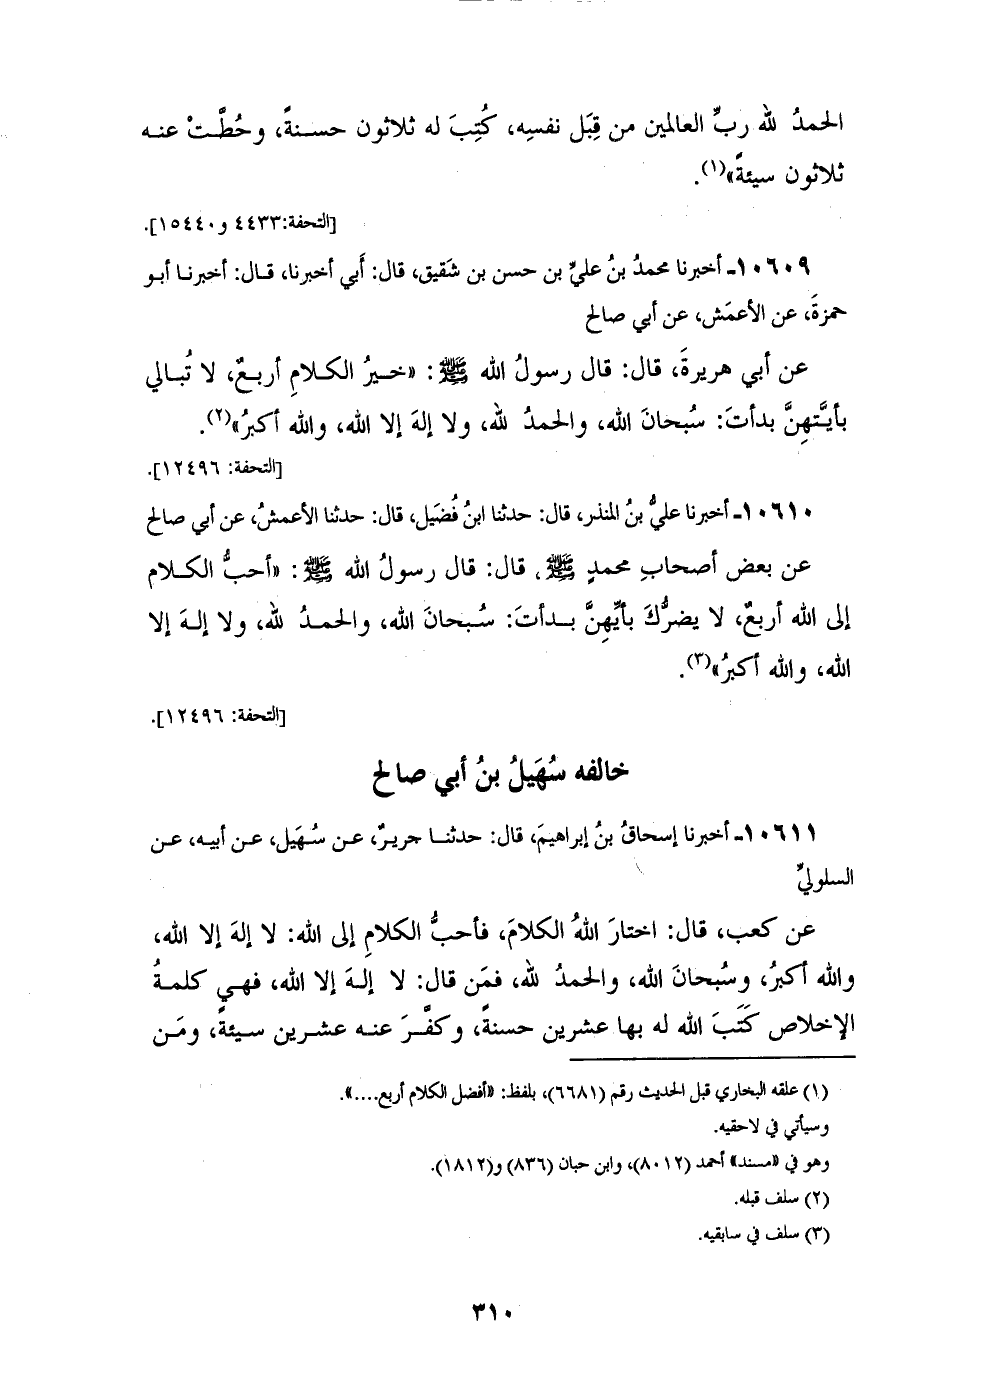 الحمدُ لله ربِّ العالمين من قِبَل نفسِه، كُتِبَ له ثلاثون حسنةً، وحُطَّتْ عنه
ثلاثون سيئةً»(١).
[التحفة:٤٤٣٣ و١٥٤٤٠].
١٠٦٠٩ـ أخبرنا محمدُ بنُ عليِّ بن حسن بن شَقيق، قال: أَبي أخبرنا، قال: أخبرنا أبو
حمزةَ، عن الأعمَش، عن أبي صالح
عن أبي هريرةَ، قال: قال رسولُ الله ﷺ: «خيرُ الكلامِ أربعٌ، لا تُبالي
بأيَّتهِنَّ بدأتَ: سُبحانَ الله، والحمدُ لله، ولا إلهَ إلا الله، والله أكبرُ»(٢).
[التحفة: ١٢٤٩٦].
١٠٦١٠ـ أخبرنا عليُّ بنُ المنذر، قال: حدثنا ابنُ فُضَيل، قال: حدثنا الأعمشُ، عن أبي صالح
عن بعض أصحابِ محمدٍ ﷺ، قال: قال رسولُ الله ﷺ: «أحبُّ الكلام
إلى الله أربعٌ، لا يضرُّكَ بأيِّهِنَّ بدأتَ: سُبحانَ الله، والحمدُ لله، ولا إلهَ إلا
الله، والله أكبرُ»(٣).
[التحفة: ١٢٤٩٦].
خالفه سُهَيلُ بنُ أبي صالح
١٠٦١١ـ أخبرنا إسحاقُ بنُ إبراهيمَ، قال: حدثنا جريرٌ، عن سُهَيل، عن أبيه، عن
السلوليِّ
عن كعب، قال: اختارَ اللهُ الكلامَ، فأحبُّ الكلامِ إلى الله: لا إلهَ إلا الله،
والله أكبرُ، وسُبحانَ الله، والحمدُ لله، فمَن قال: لا إلهَ إلا الله، فهي كلمةُ
الإخلاص كَتَبَ الله له بها عشرين حسنةً، وكفَّرَ عنه عشرين سيئةً، ومَن
(١) علقه البخاري قبل الحديث رقم (٦٦٨١)، بلفظ: «أفضل الكلام أربع....».
وسيأتي في لاحقيه.
وهو في «مسند» أحمد (٨٠١٢)، وابن حبان (٨٣٦) و(١٨١٢).
(٢) سلف قبله.
(٣) سلف في سابقيه.
٣١٠